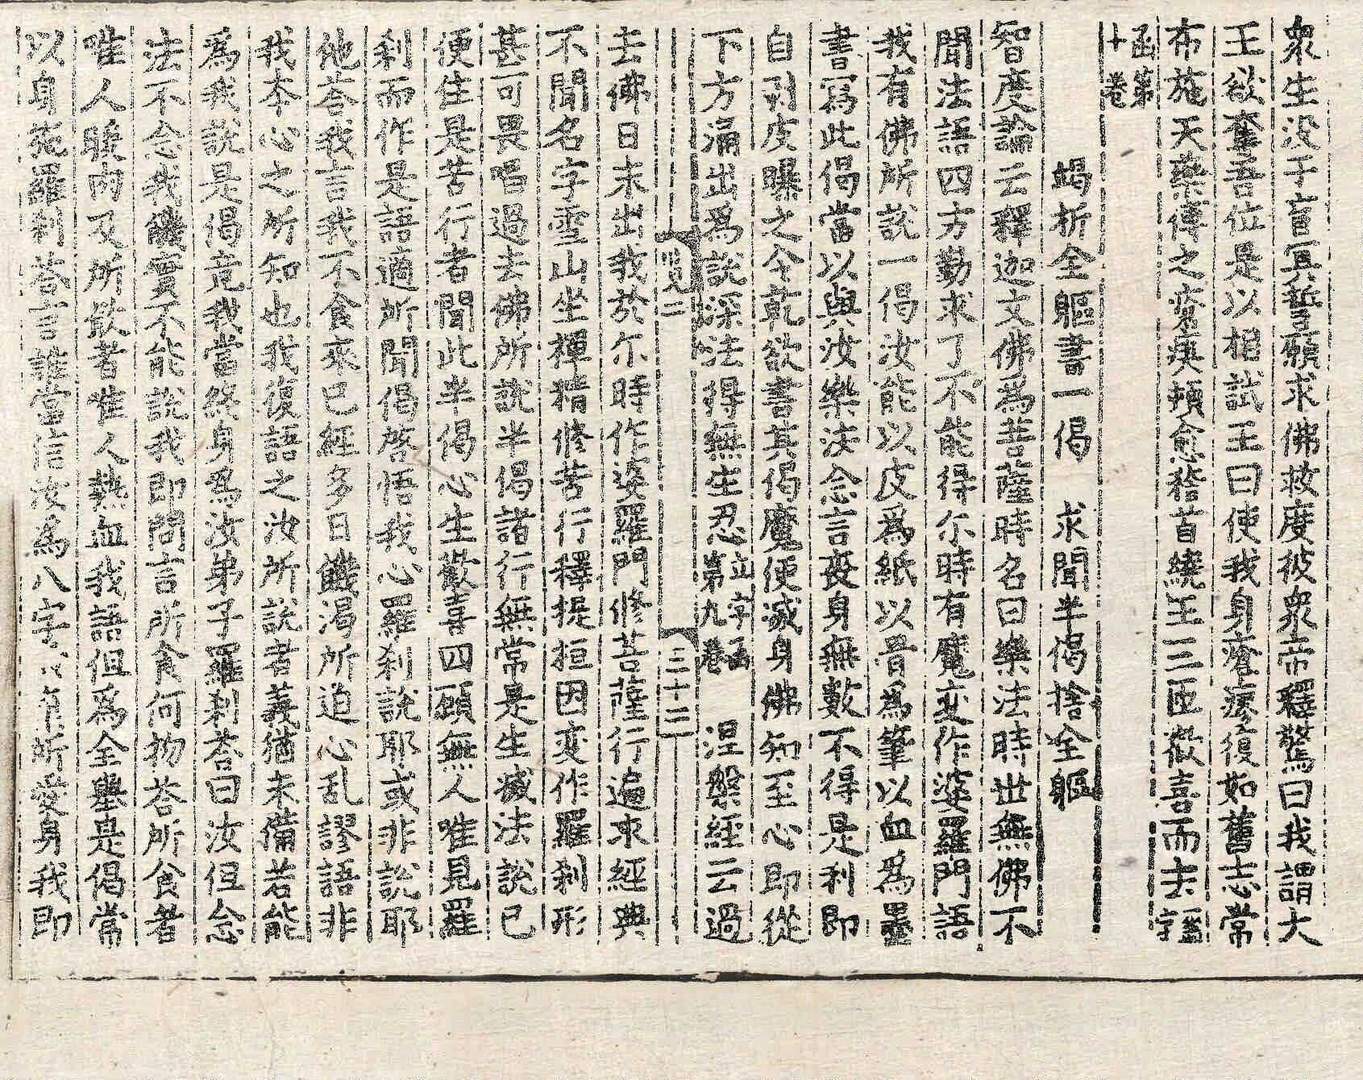 衆生没于盲冥誓願求佛救度彼衆帝釋驚曰我謂大
王欲奪吾位是以相試王曰使我身瘡瘳復如舊志常
布施天藥傅之瘡痍頓愈稽首繞王三匝歡喜而去
函第
十卷
竭折全軀書一偈 求聞半偈捨全軀
智度論云釋迦文佛為菩薩時名曰樂法時世無佛不
聞法語四方勤求了不能得尒時有魔变作婆羅門語
我有佛所說一偈汝能以皮爲紙以骨爲筆以血爲墨
書寫此偈當以與汝樂法念言丧身無數不得是利即
自剥皮曝之令乾欲書其偈魔便滅身佛知至心即從
下方涌出爲說深法得無生忍 第九卷 涅槃經云過
三十二
去佛日未出我於尒時作婆羅門修菩薩行遍求經典
不聞名字雪山坐禅精修苦行釋提桓因变作羅刹形
甚可畏唱過去佛所說半偈諸行無常是生滅法說已
便住是苦行者聞此半偈心生歡喜四顧無人唯見羅
刹而作是語適所聞偈啓悟我心羅刹說耶或非說耶
他荅我言我不食來已經多日饑渴所迫心乱謬語非
我本心之所知也我復語之汝所說者義猶未備若能
爲我說是偈竟我當終身爲汝弟子羅刹荅曰汝但念
法不念我饑實不能說我即問言所食何物荅所食者
唯人暖肉及所飲者唯人熱血我語但爲全舉是偈當
以身施羅刹荅言誰當信汝爲八字所愛身我即